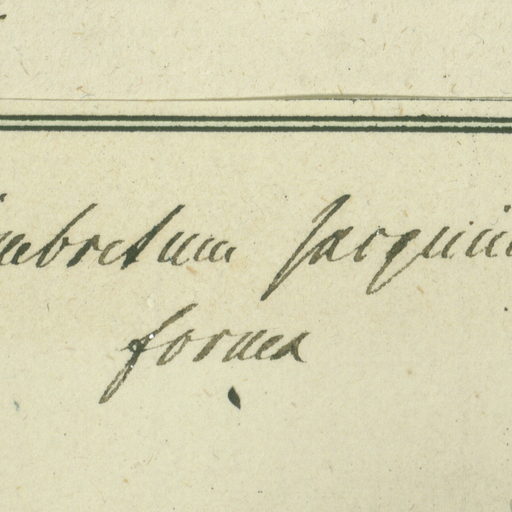 mbretum Jacquini
forma